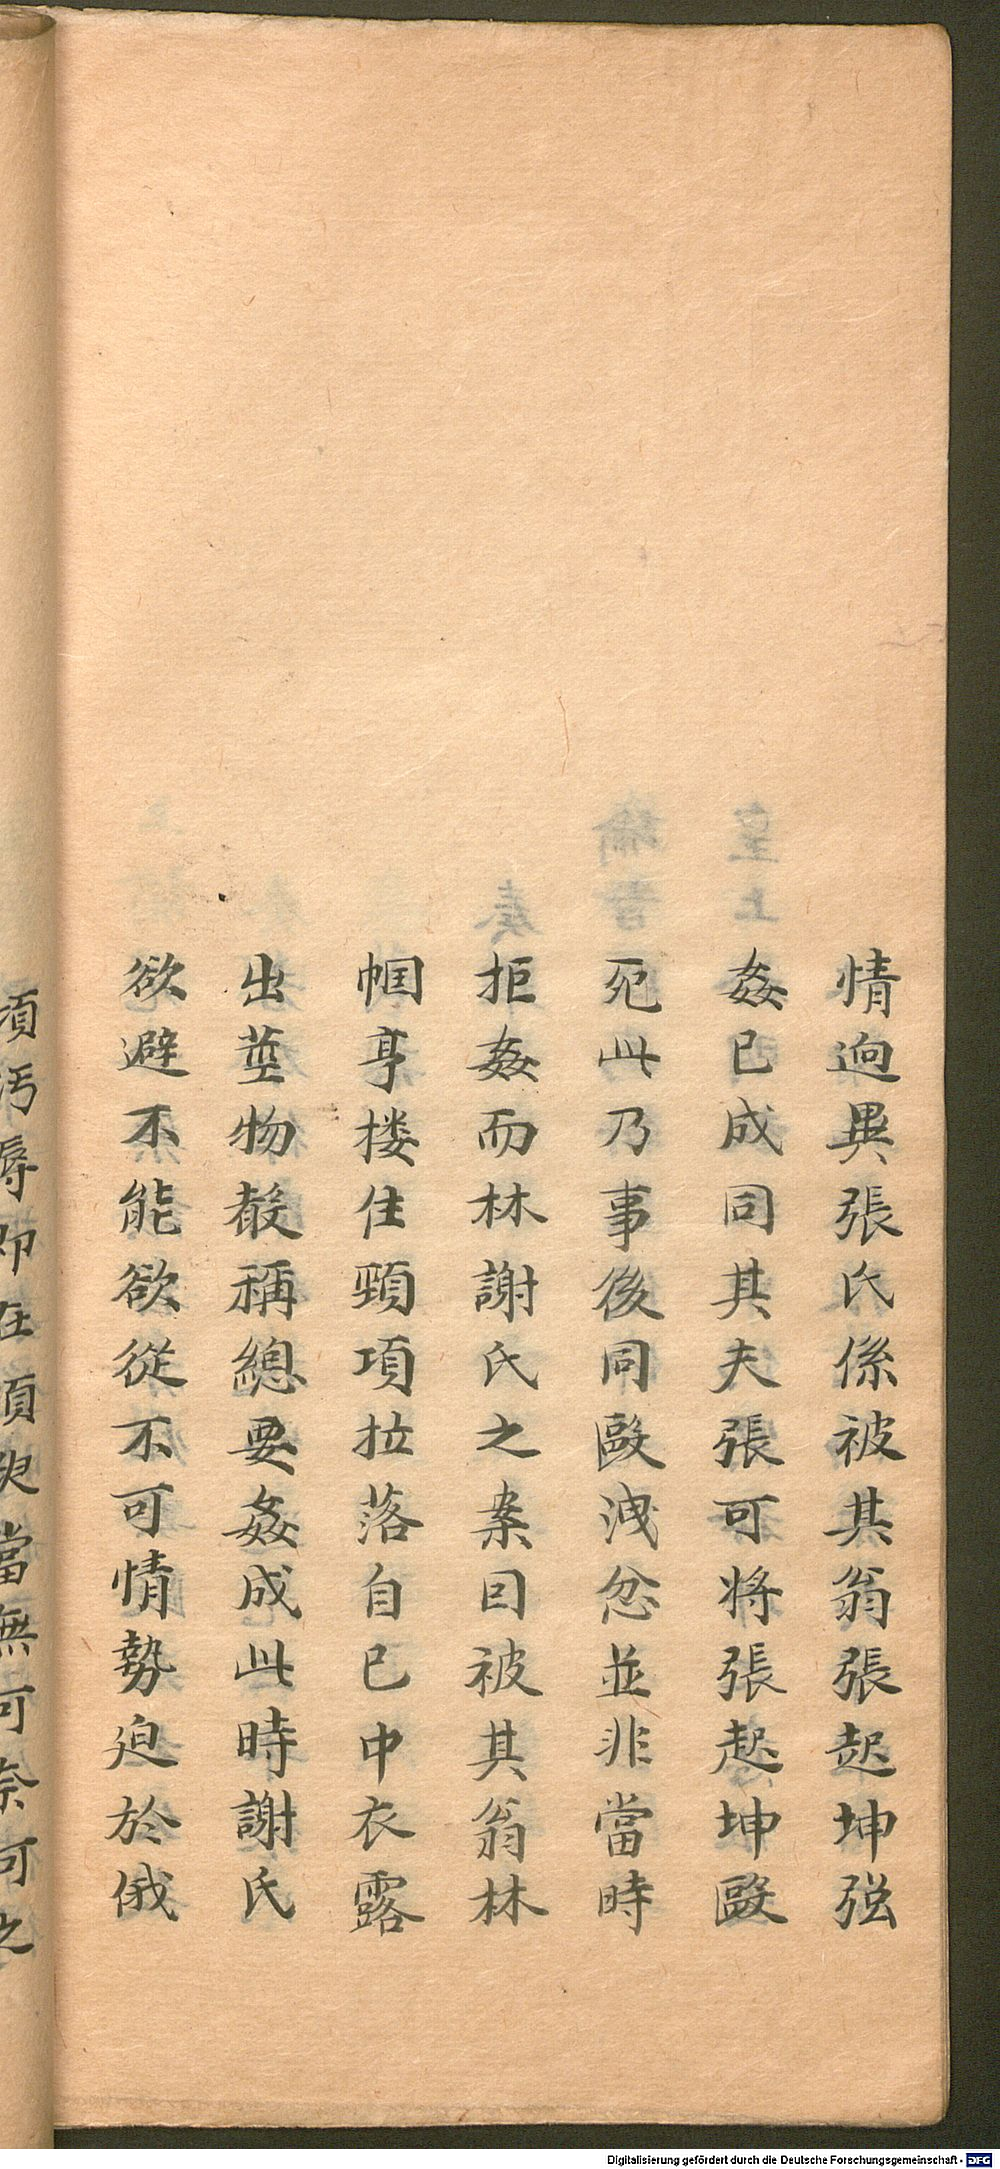 情逈異張氏係被其翁張起坤强
姦已成同其夫張可將張起坤毆
死此乃事後同毆洩忿並非當時
拒姦而林謝氏之案因被其翁林
帼亨楼住頸項拉落自已中衣露
出莖物聲稱總要姦成此時謝氏
欲避不能欲從不可情勢迫於俄
頃污辱即在須臾當無可奈何之
Digitalisierung gefördert durch die Deutsche Forschungsgemeinschaft - DFG